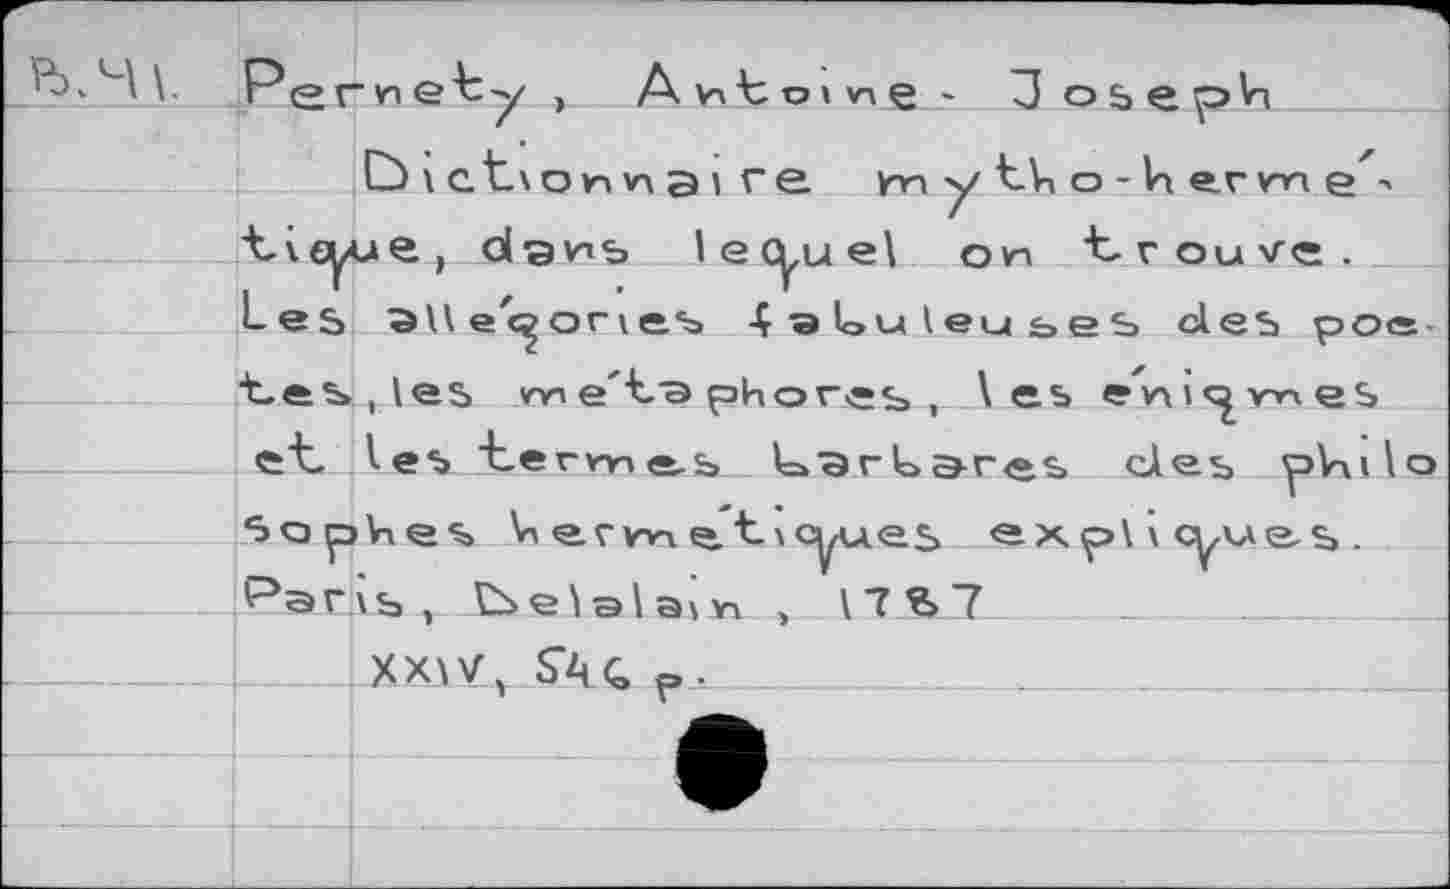 B.41. Pernety, Antoine-Joseph
Dictionnaire mytho-hermé-
tique, dans lequel on trouve.
Les allégories fabuleuses des poe-
tes, les métaphores, les énigmes
et les termes barbares des philo
sophes hermétiques expliques.
Paris, Delalain, 1787
XXIV, 546 p.